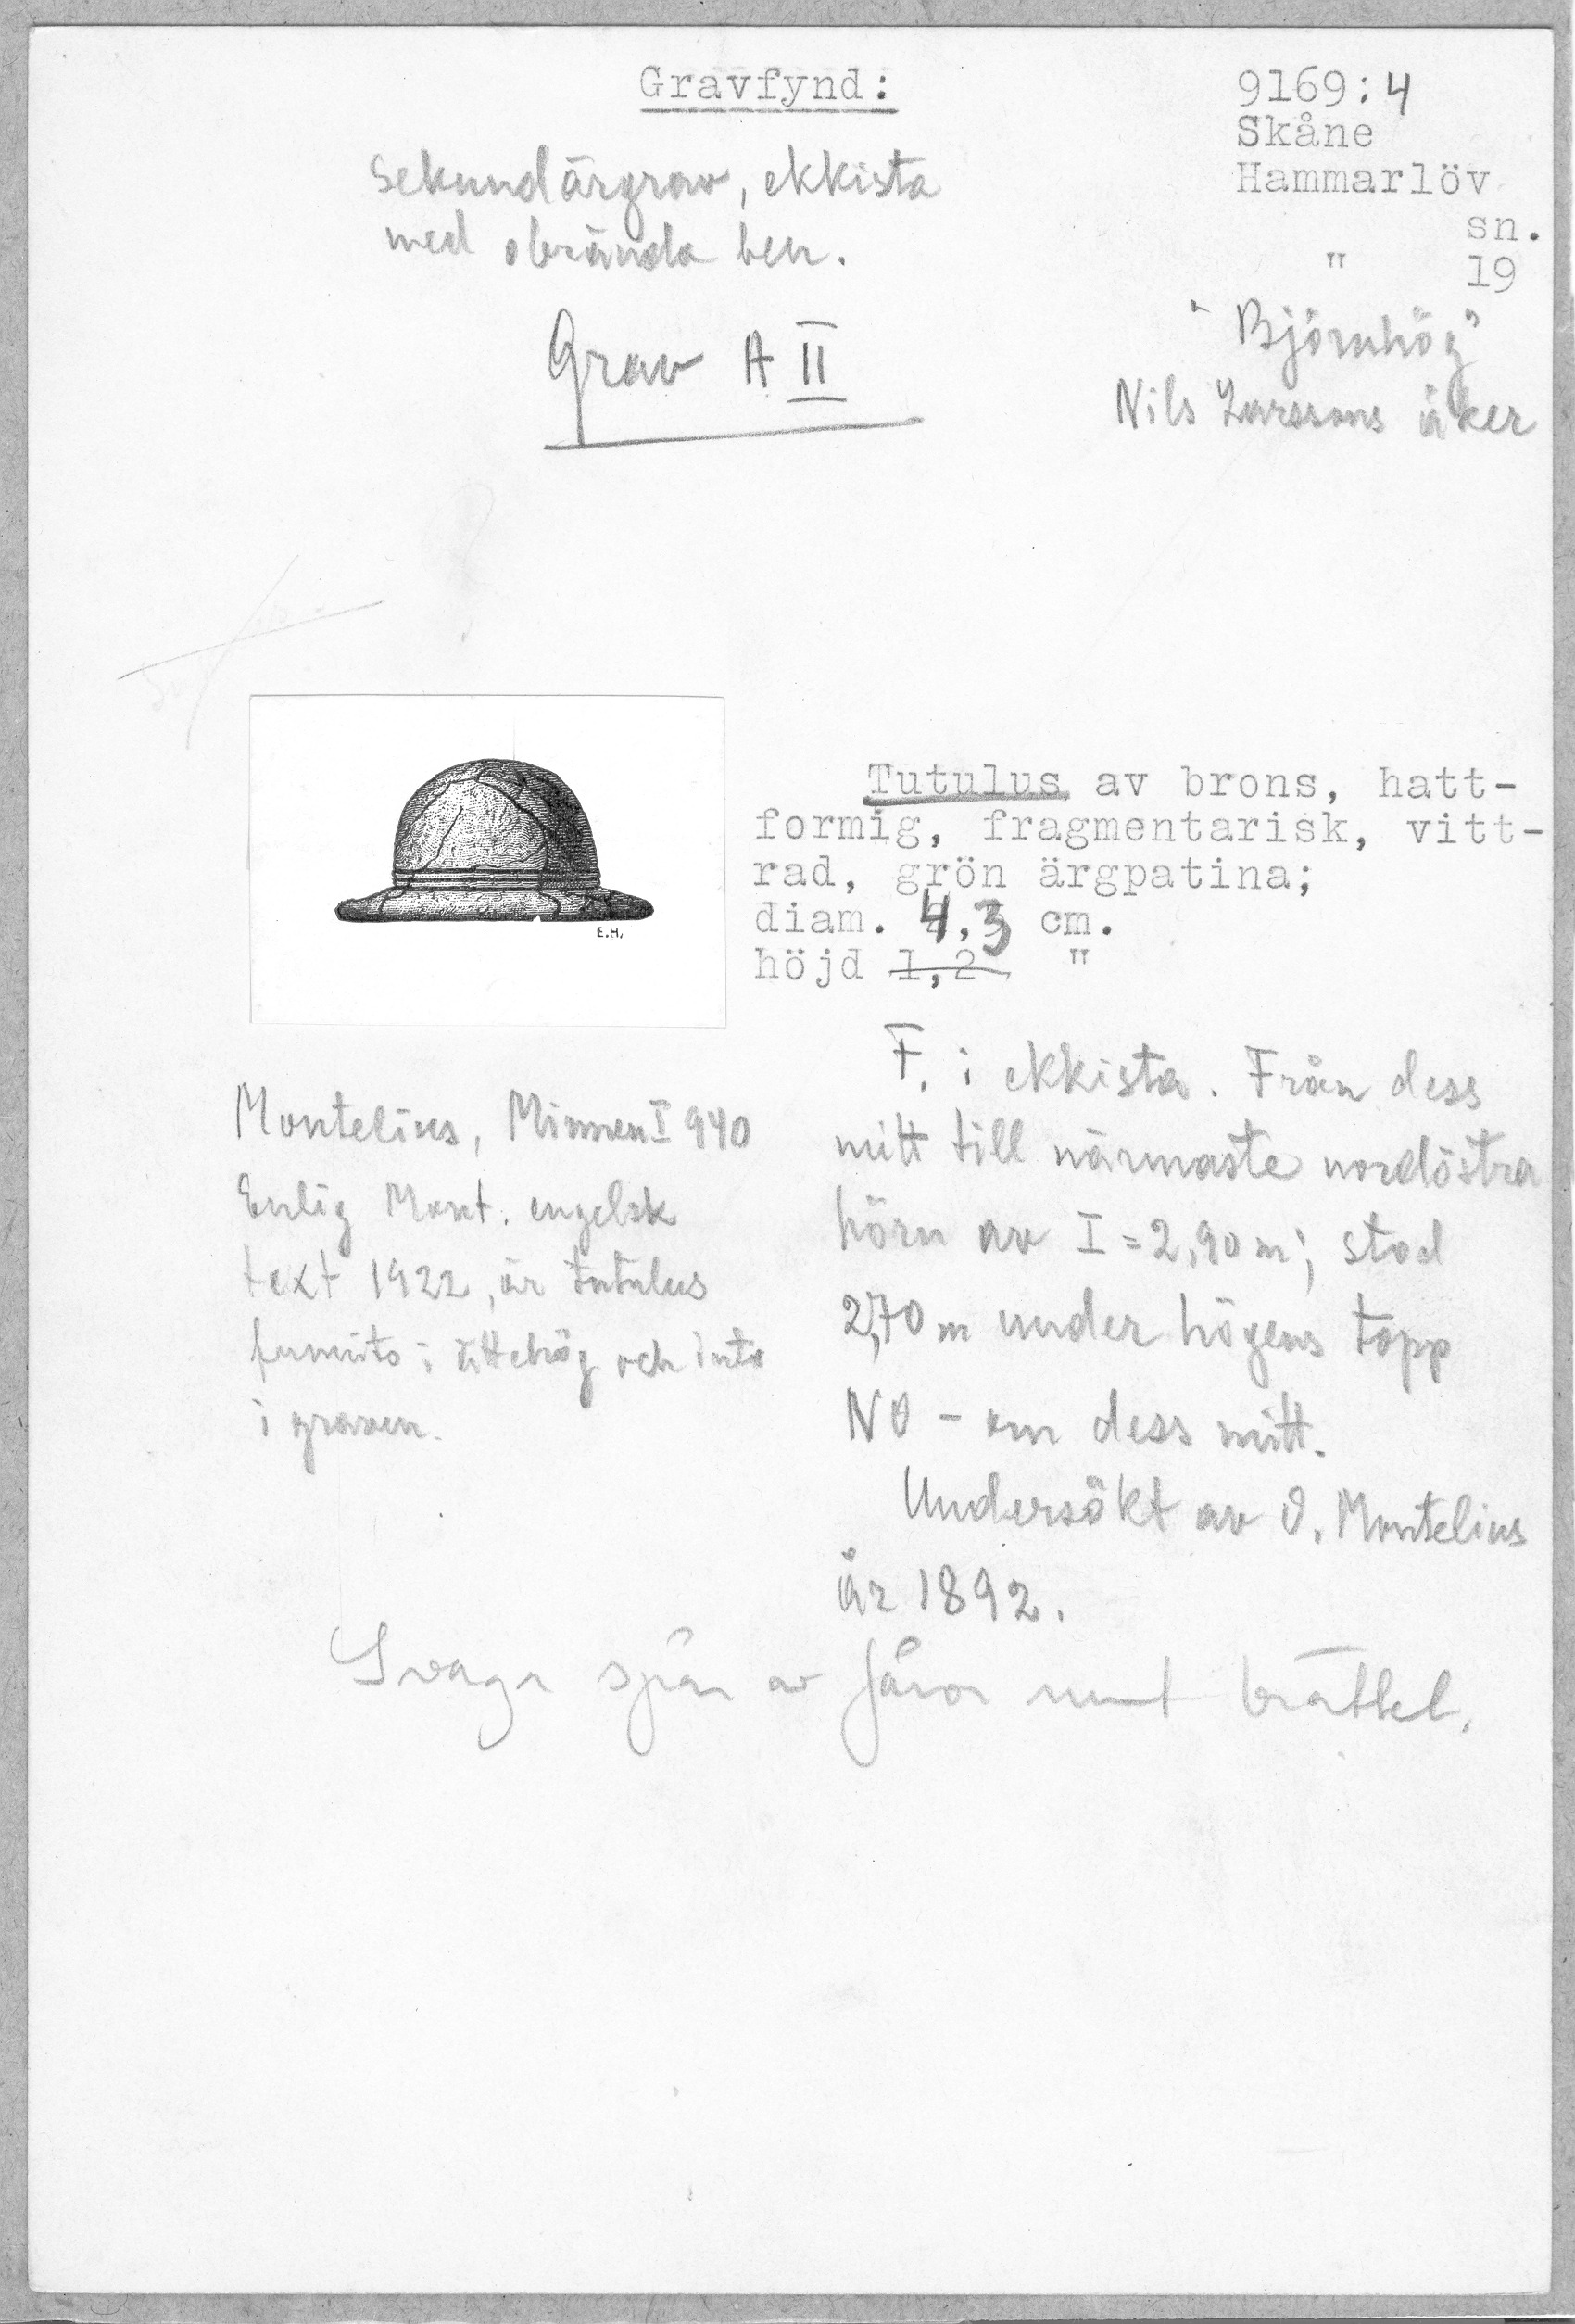 Gravfynd:
9169:4
Skåne
Hammarlöv
sn.
" 19
"Björnhög"
Nils Larssons åker
Sekundärgrav, ekkista
med obrända ben.
Grav A II
E.H.
Tutulus av brons, hatt-
formig, fragmentarisk, vitt-
rad, grön ärgpatina;
diam. 4,3 cm.
höjd 1,2 "
F. i ekkista. Från dess
mitt till närmaste nordöstra
hörn av I = 2,90 m; stod
2,70 m under högens topp
NO - om dess mitt.
Undersökt av O. Montelius
år 1892.
Montelius, Minnen I 940
Enlig Mont. engelsk
text 1922, är tutulus
funnits i ättehög och inte
i graven.
Svaga spår av fåror runt brättet.